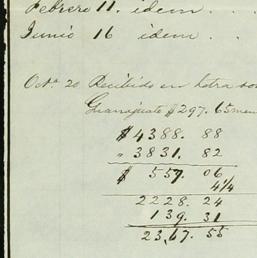 Febrero 11. idem . . .
Junio 16 idem . . .
Oct.e 20 Recibido en letra so
Guanajuato $297. 65 men
$ 4388. 88
" 3831. 82
$ 557. 06
4¼
2228. 24
139. 31
2367. 55